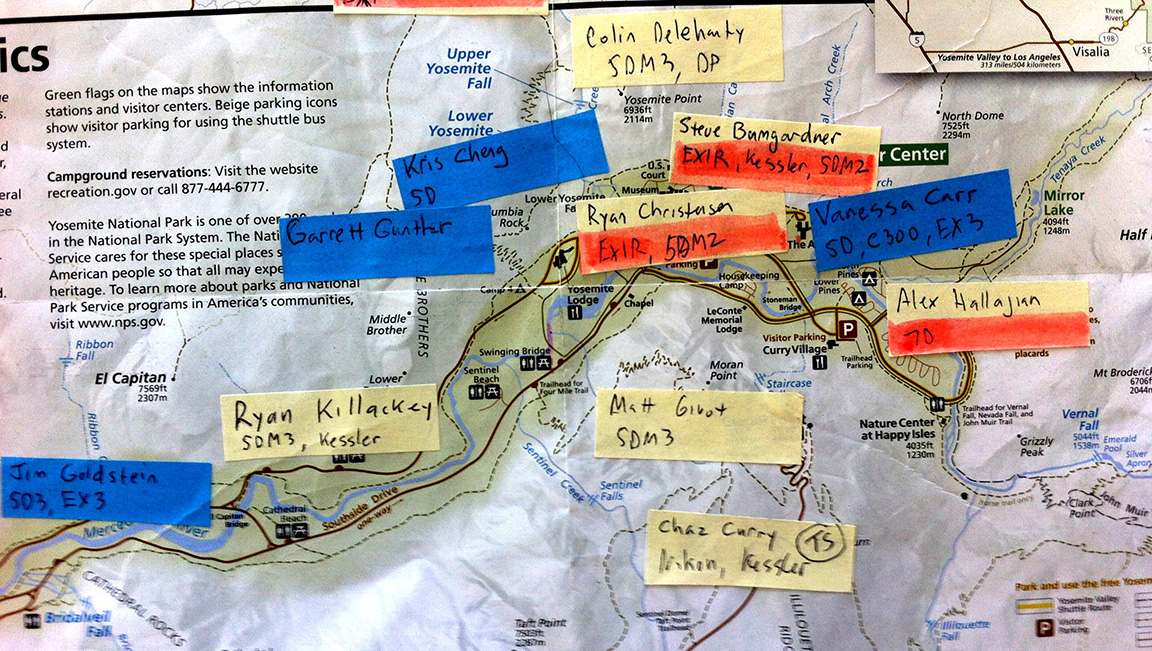 ics
Green flags on the maps show the information
stations and visitor centers. Beige parking icons
show visitor parking for using the shuttle bus
system.
Campground reservations: Visit the website
recreation.gov or call 877-444-6777.
Yosemite National Park is one of over
in the National Park System. The Nati
Service cares for these special places s
American people so that all may expe
heritage. To learn more about parks and National
Park Service programs in America's communities,
visit www.nps.gov.
Upper
Yosemite
Fall
Lower
Yosemite
Colin Delehanty
5DM3, DP
Yosemite Point
6936ft
2114m
5
Yosemite Valley to Los Angeles
313 miles/504 kilometers
Three
Rivers
198
Visalia
North Dome
7525ft
2294m
Arch Creek
Tenaya Creek
Steve Bumgardner
EX1R, Kessler, 5DM2
r Center
Kris Cheng
5D
U.S.
Court
Museum
Mirror
Lake
4094ft
1248m
Half
Garrett Gunther
umbia
Rock
Lower Yosemite
Ryan Christensen
EX1R, 5DM2
The A
Vanessa Carr
5D, C300, EX3
Parking
P
Housekeeping
Camp
Pines
Lower
Pines
Camp 4
Yosemite
Lodge
Chapel
Stoneman
Bridge
Alex Hallajian
7D
placards
LeConte
Memorial
Lodge
Visitor Parking
P
Curry Village
Trailhead
Parking
E BROTHERS
Middle
Brother
Lower
Swinging Bridge
Sentinel
Beach
Trailhead for
Four Mile Trail
Moran
Point
Staircase
Ribbon
Fall
El Capitan
7569ft
2307m
Ribbon
Mt Broderick
6706f
2044m
Ryan Killackey
5DM3, Kessler
Matt Givot
5DM3
Nature Center
at Happy Isles
4035ft
1230m
Trailhead for Vernal
Fall, Nevada Fall, and
John Muir Trail
Vernal
Fall
5044ft
1538m
Emerald
Pool
Silver
Apron
Grizzly
Peak
Jim Goldstein
5D3, EX3
Sentinel Creek
Sentinel
Falls
Clark
Point
John Muir
El Capitan
Bridge
Cathedral
Beach
Southside Drive
one-way
Merced River
Chaz Curry
Nikon, Kessler
TS
CATHEDRAL ROCKS
Bridalveil
Fall
Sentinel Dome
Taft Point
Trailhead
Taft Point
7503ft
2287m
ILLILOUETTE
RIDG
Illilouette
Fall
Park and use the free Yosem
Yosemite Valley
Shuttle Route
P
Visitor
Parking